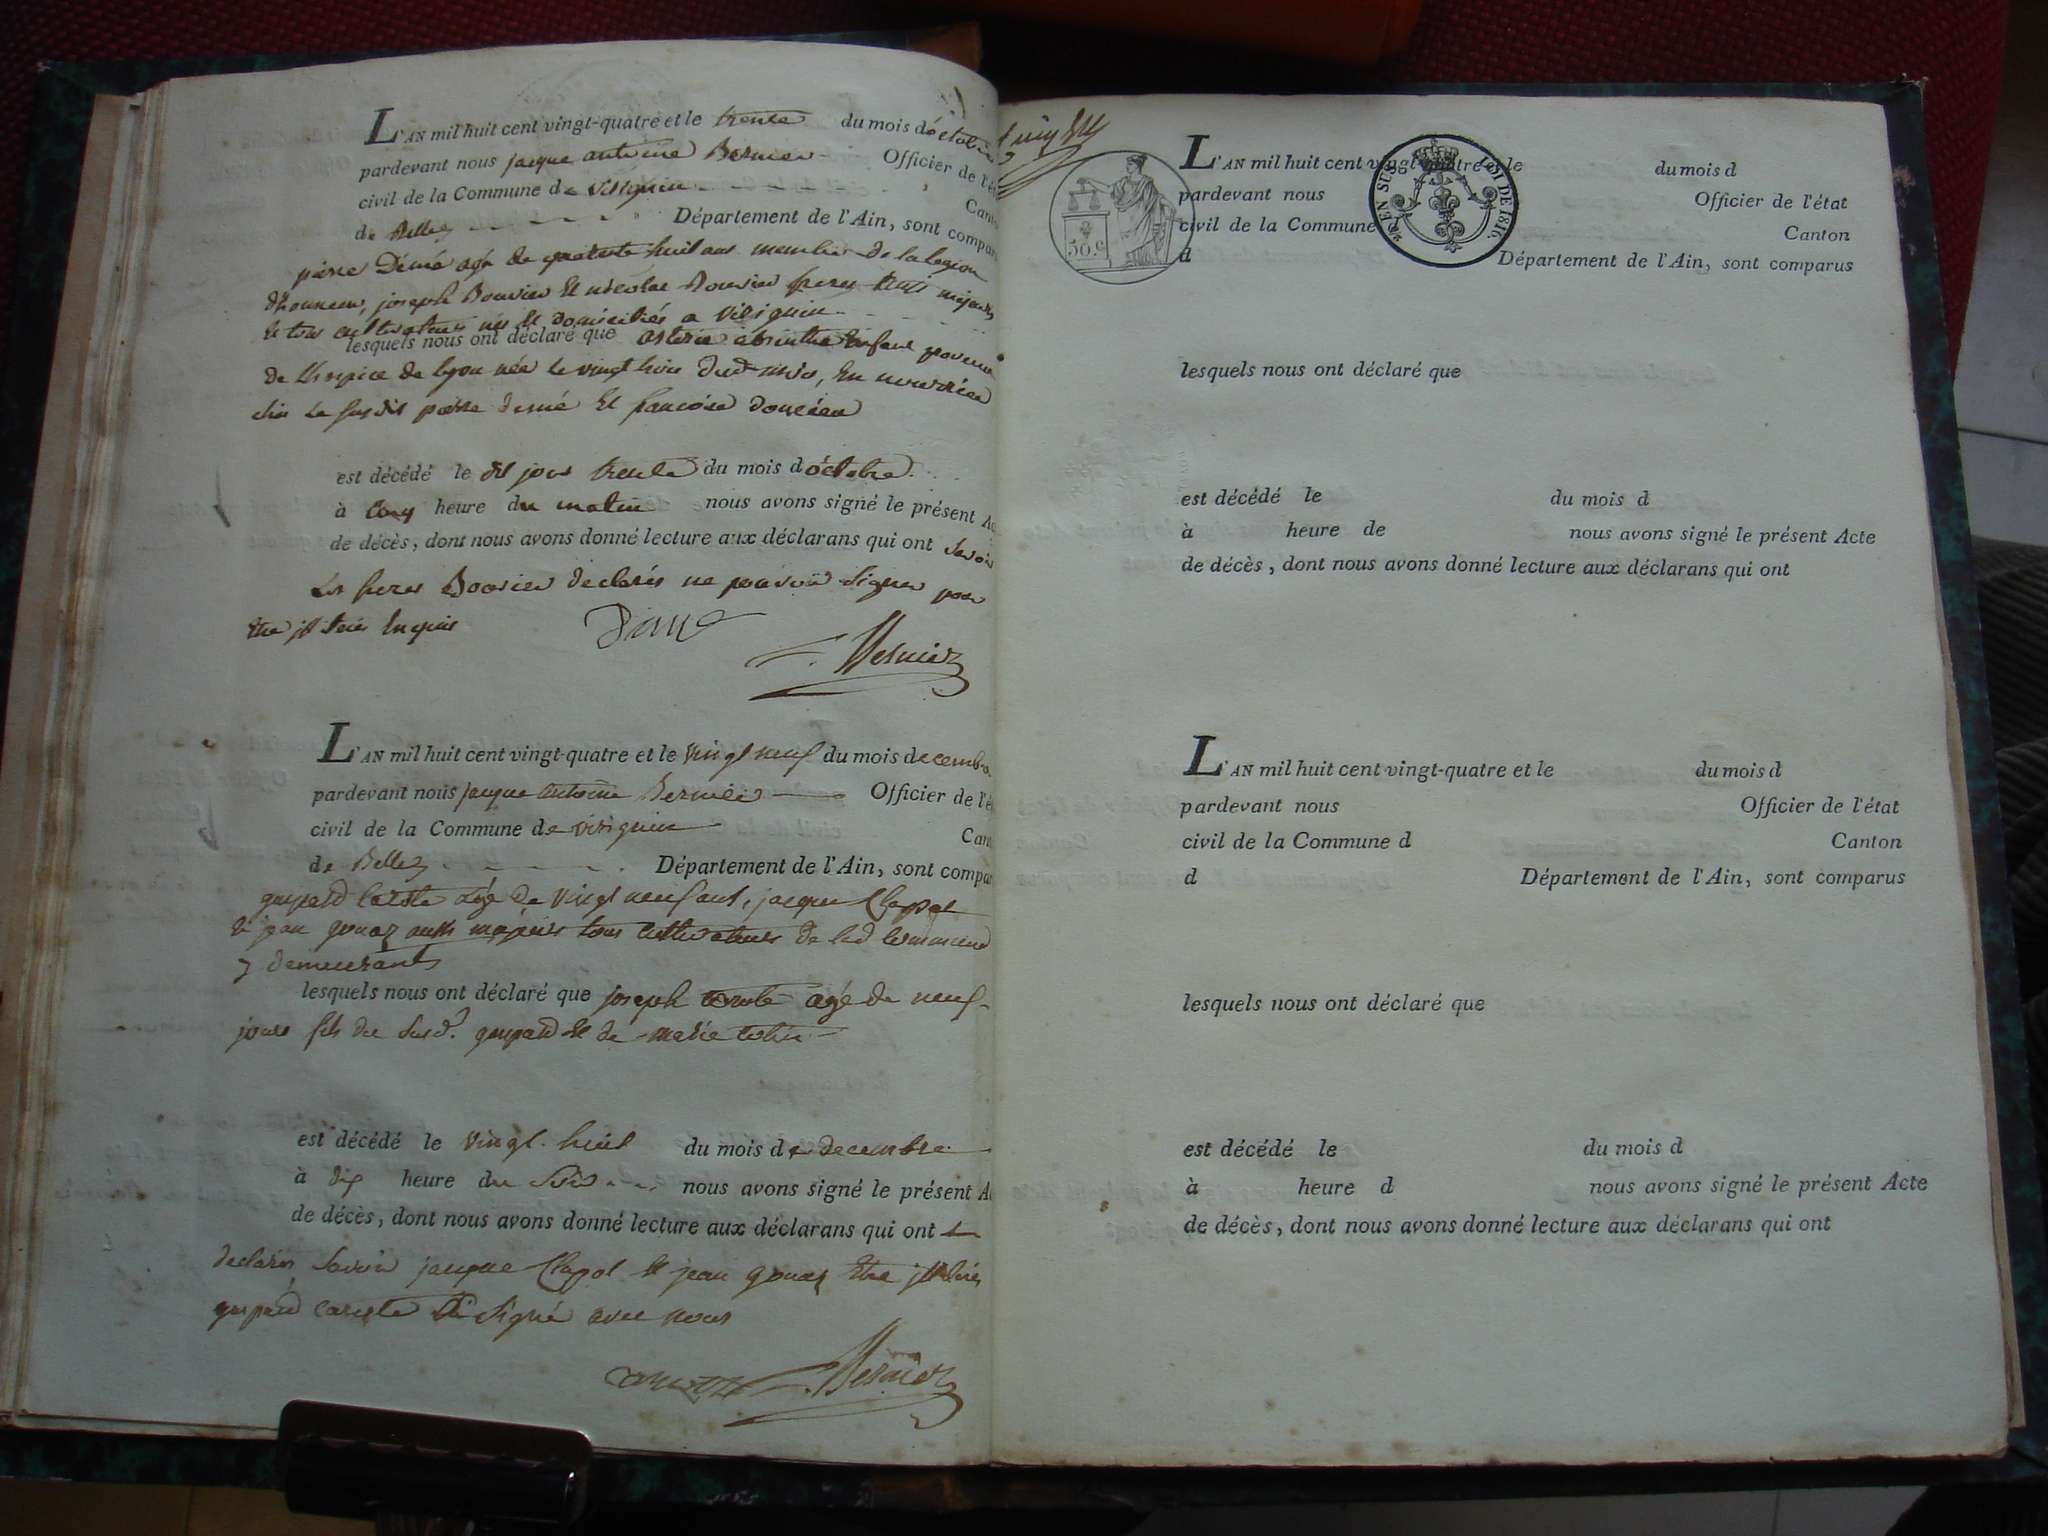 L'AN mil huit cent vingt-quatre et le trente du mois d'octobre
pardevant nous jacque antoine Bernier Officier de l'ét
civil de la Commune de virignin Cant
de Belley Département de l'Ain, sont compar
pierre Démé agé de quarante huit ans membre de la legion
dhonneur, joseph Bouvier et nicolas Bouvier freres tous majeurs
et tous cultivateurs nés et domiciliés a virignin
lesquels nous ont déclaré que enfant provenu
de lhospice de lyon née le vingt trois dudt mois, en nourrice
chez le susdit pierre demé et francoise
est décédé le dit jour trente du mois d'octobre
à onze heure du matin nous avons signé le présent Ac
de décès, dont nous avons donné lecture aux déclarans qui ont savoir
Les freres Bouvier declarés ne pouvoir signer pour
etre enquis
Démé
Bernier
L'AN mil huit cent vingt-quatre et le vingt neuf du mois decembre
pardevant nous jacque antoine Bernier Officier de l'é
civil de la Commune de virignin Cant
de Belley Département de l'Ain, sont compar
gaspard agé de vingt neuf ans, jacque Clapot
et jean gonaz aussi majeurs tous cultivateurs de lad commune
y demeurants
lesquels nous ont déclaré que joseph agé de neuf
jours fils du susd. gaspard et de marie
est décédé le vingt huit du mois de decembre
à dix heure du soir nous avons signé le présent A
de décès, dont nous avons donné lecture aux déclarans qui ont
declarés savoir jacque Clapot et jean gonaz etre
gaspard a signé avec nous
Bernier
50 c
EN SUS
LOI DE 1816.
L'AN mil huit cent vingt-quatre et le du mois d
pardevant nous Officier de l'état
civil de la Commune Canton
d Département de l'Ain, sont comparus
lesquels nous ont déclaré que
est décédé le du mois d
à heure de nous avons signé le présent Acte
de décès, dont nous avons donné lecture aux déclarans qui ont
L'AN mil huit cent vingt-quatre et le du mois d
pardevant nous Officier de l'état
civil de la Commune d Canton
d Département de l'Ain, sont comparus
lesquels nous ont déclaré que
est décédé le du mois d
à heure d nous avons signé le présent Acte
de décès, dont nous avons donné lecture aux déclarans qui ont